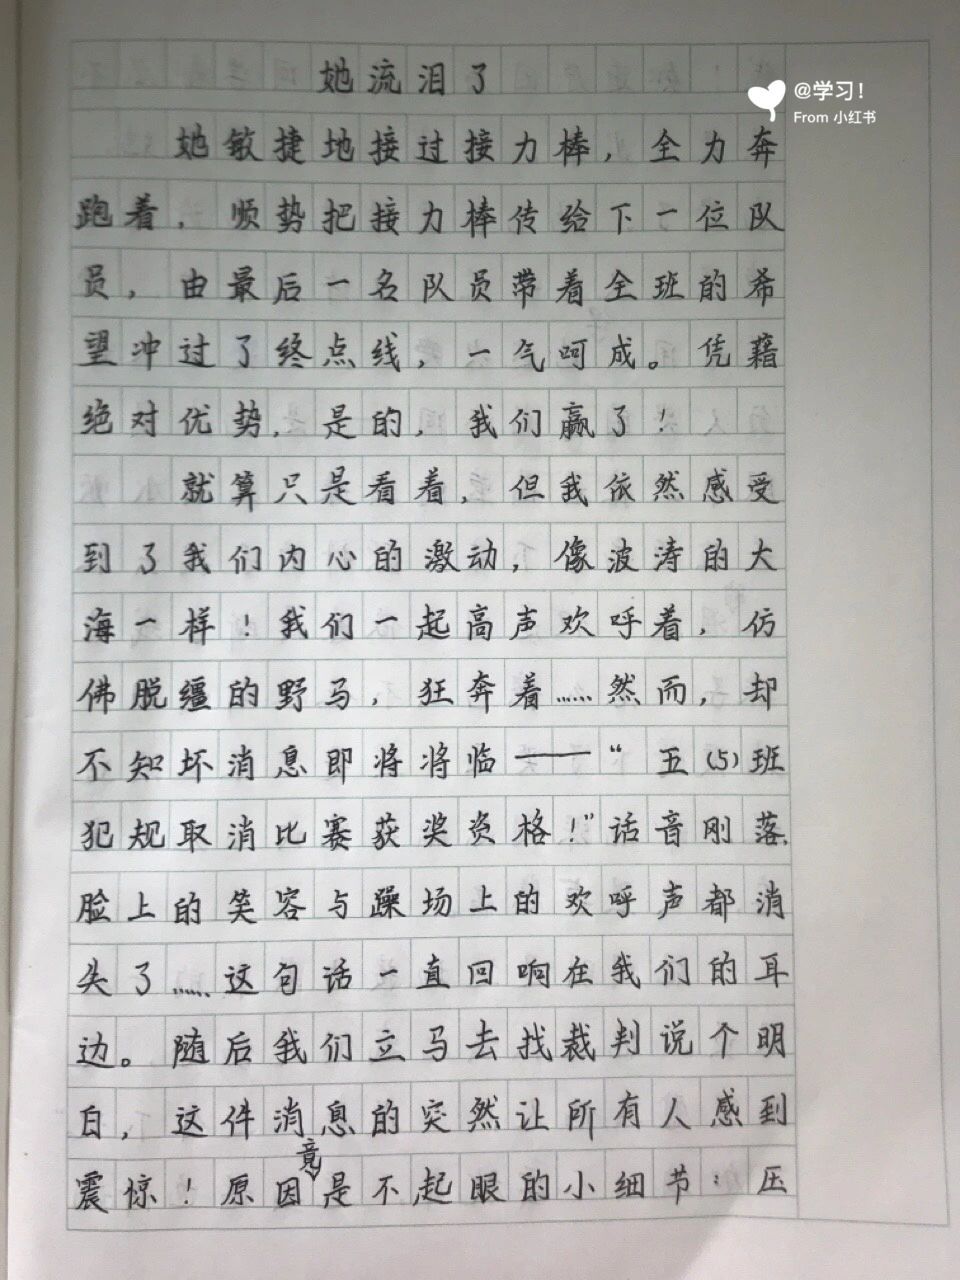 她流泪了
@学习！
From 小红书
她敏捷地接过接力棒，全力奔
跑着，顺势把接力棒传给下一位队
员，由最后一名队员带着全班的希
望冲过了终点线，一气呵成。凭藉
绝对优势，是的，我们赢了！
就算只是看着，但我依然感受
到了我们内心的激动，像波涛的大
海一样！我们一起高声欢呼着，仿
佛脱缰的野马，狂奔着……然而，却
不知坏消息即将将临——“五(5)班
犯规取消比赛获奖资格！”话音刚落，
脸上的笑容与躁场上的欢呼声都消
失了……这句话一直回响在我们的耳
边。随后我们立马去找裁判说个明
白，这件消息的突然让所有人感到
震惊！原因竟是不起眼的小细节：压